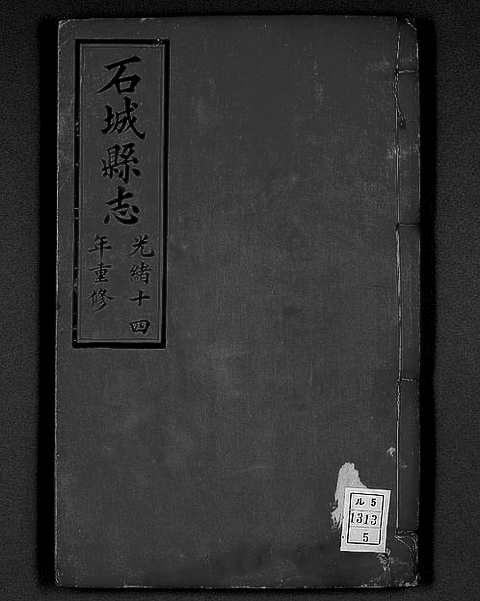 石城縣志
光緒十四
年重修
ル 5
1313
5